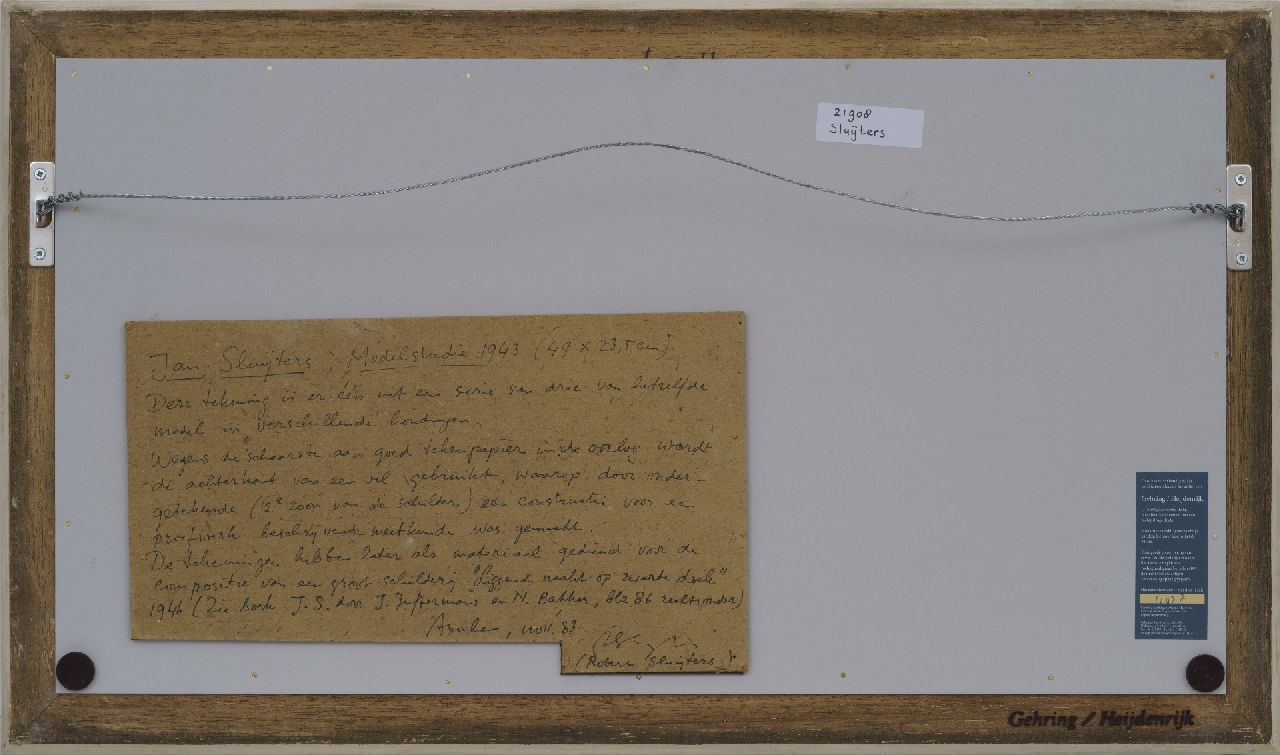 21908
Sluijters
Jan Sluijters, Modelstudie 1943 (49 x 23,5 cm)
Deze tekening is er één uit een serie van drie van hetzelfde
model in verschillende houdingen.
Wegens de schaarste aan goed tekenpapier in de oorlog werdt
de achterkant van een vel gebruikt, waarop door onder-
getekende (2e zoon van de schilder) een constructie voor een
proefwerk beschrijvende meetkunde was gemaakt.
De tekeningen hebben later als materiaal gediend voor de
compositie van een groot schilderij "Liggend naakt op zwarte doek"
1946 (Zie boek J.S. door J. Juffermans en N. Bakker, blz 86 rechtsonder)
Arnhem, nov. 83
(Robert Sluijters)
Gehring / Heijdenrijk
Gehring / Heijdenrijk